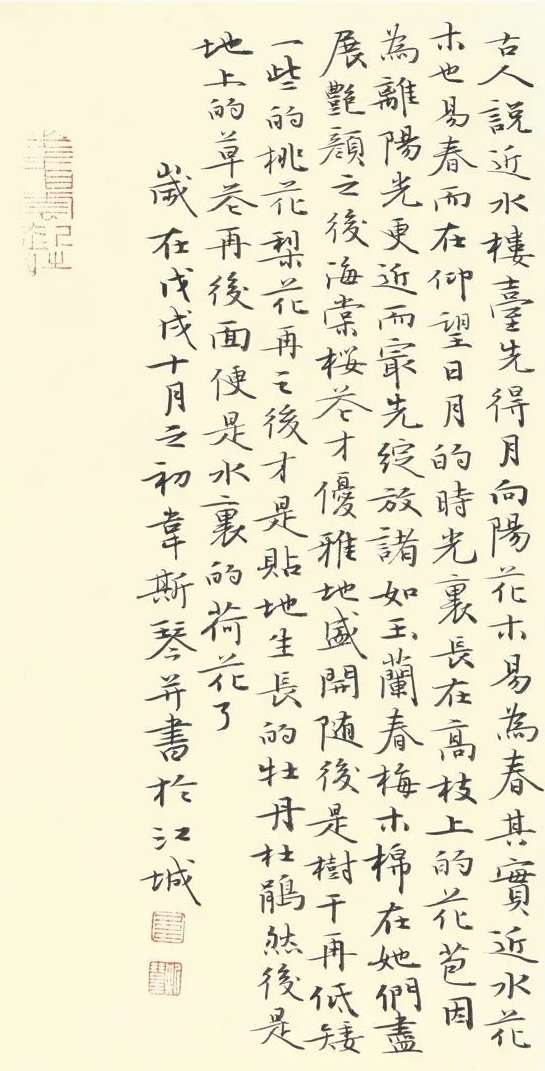 古人說近水樓臺先得月向陽花木易為春其實近水花
木也易春而在仰望日月的時光裏長在高枝上的花苞因
為離陽光更近而最先綻放諸如玉蘭春梅木棉在她們盡
展艷顏之後海棠桜花才優雅地盛開随後是樹干再低矮
一些的桃花梨花再之後才是貼地生長的牡丹杜鵑然後是
地上的草花再後面便是水裏的荷花了
歲在戊戌十月之初韋斯琴并書於江城